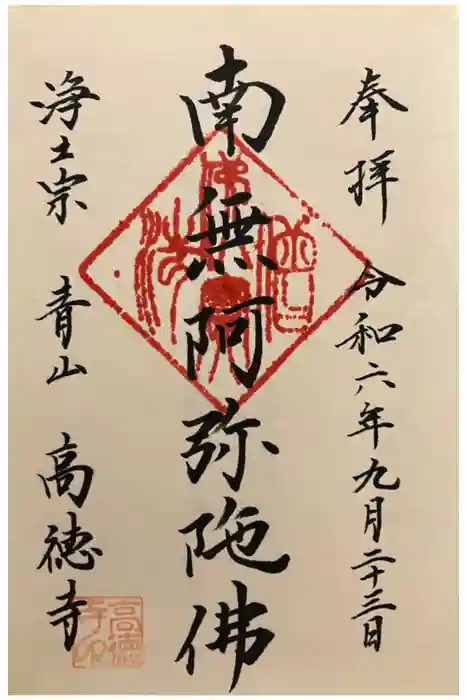 奉拝 令和六年九月二十三日
南無阿弥陀佛
浄土宗 青山 高徳寺
高徳寺印